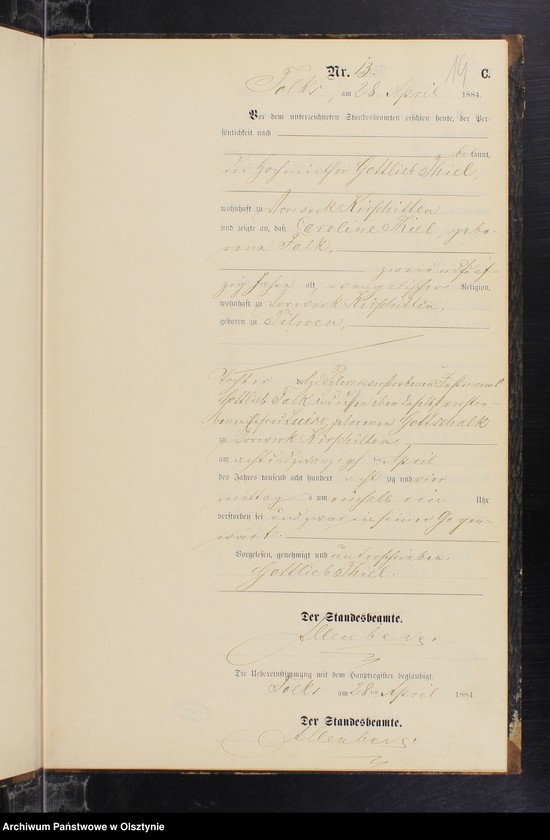 Nr. 13. 19 C.
Tolks, am 28. April 1884.
Vor dem unterzeichneten Standesbeamten erschien heute, der Per-
sönlichkeit nach
be kannt,
der Gottlieb Thiel,
wohnhaft zu Vorwerk Kirschitten
und zeigte an, daß Caroline Thiel, gebo-
rene Falk,
zweiundfünf-
zig Jahre alt, evangelischer Religion,
wohnhaft zu Vorwerk Kirschitten,
geboren zu Pilwen,
Tochter des zu Pilwen verstorbenen
Gottlieb Falk und dessen ebendaselbst verstor-
benen Ehefrau Luise, geborenen Gottschalk
zu Vorwerk Kirschitten
am achtundzwanzigsten April
des Jahres tausend acht hundert acht zig und vier
mittags um einhalb ein Uhr
verstorben sei und zwar in seiner Gegen-
wart.
Vorgelesen, genehmigt und unterschrieben.
Gottlieb Thiel.
Der Standesbeamte.
Die Uebereinstimmung mit dem Hauptregister beglaubigt
Tolks am 28ten April 1884.
Der Standesbeamte.
Archiwum Państwowe w Olsztynie